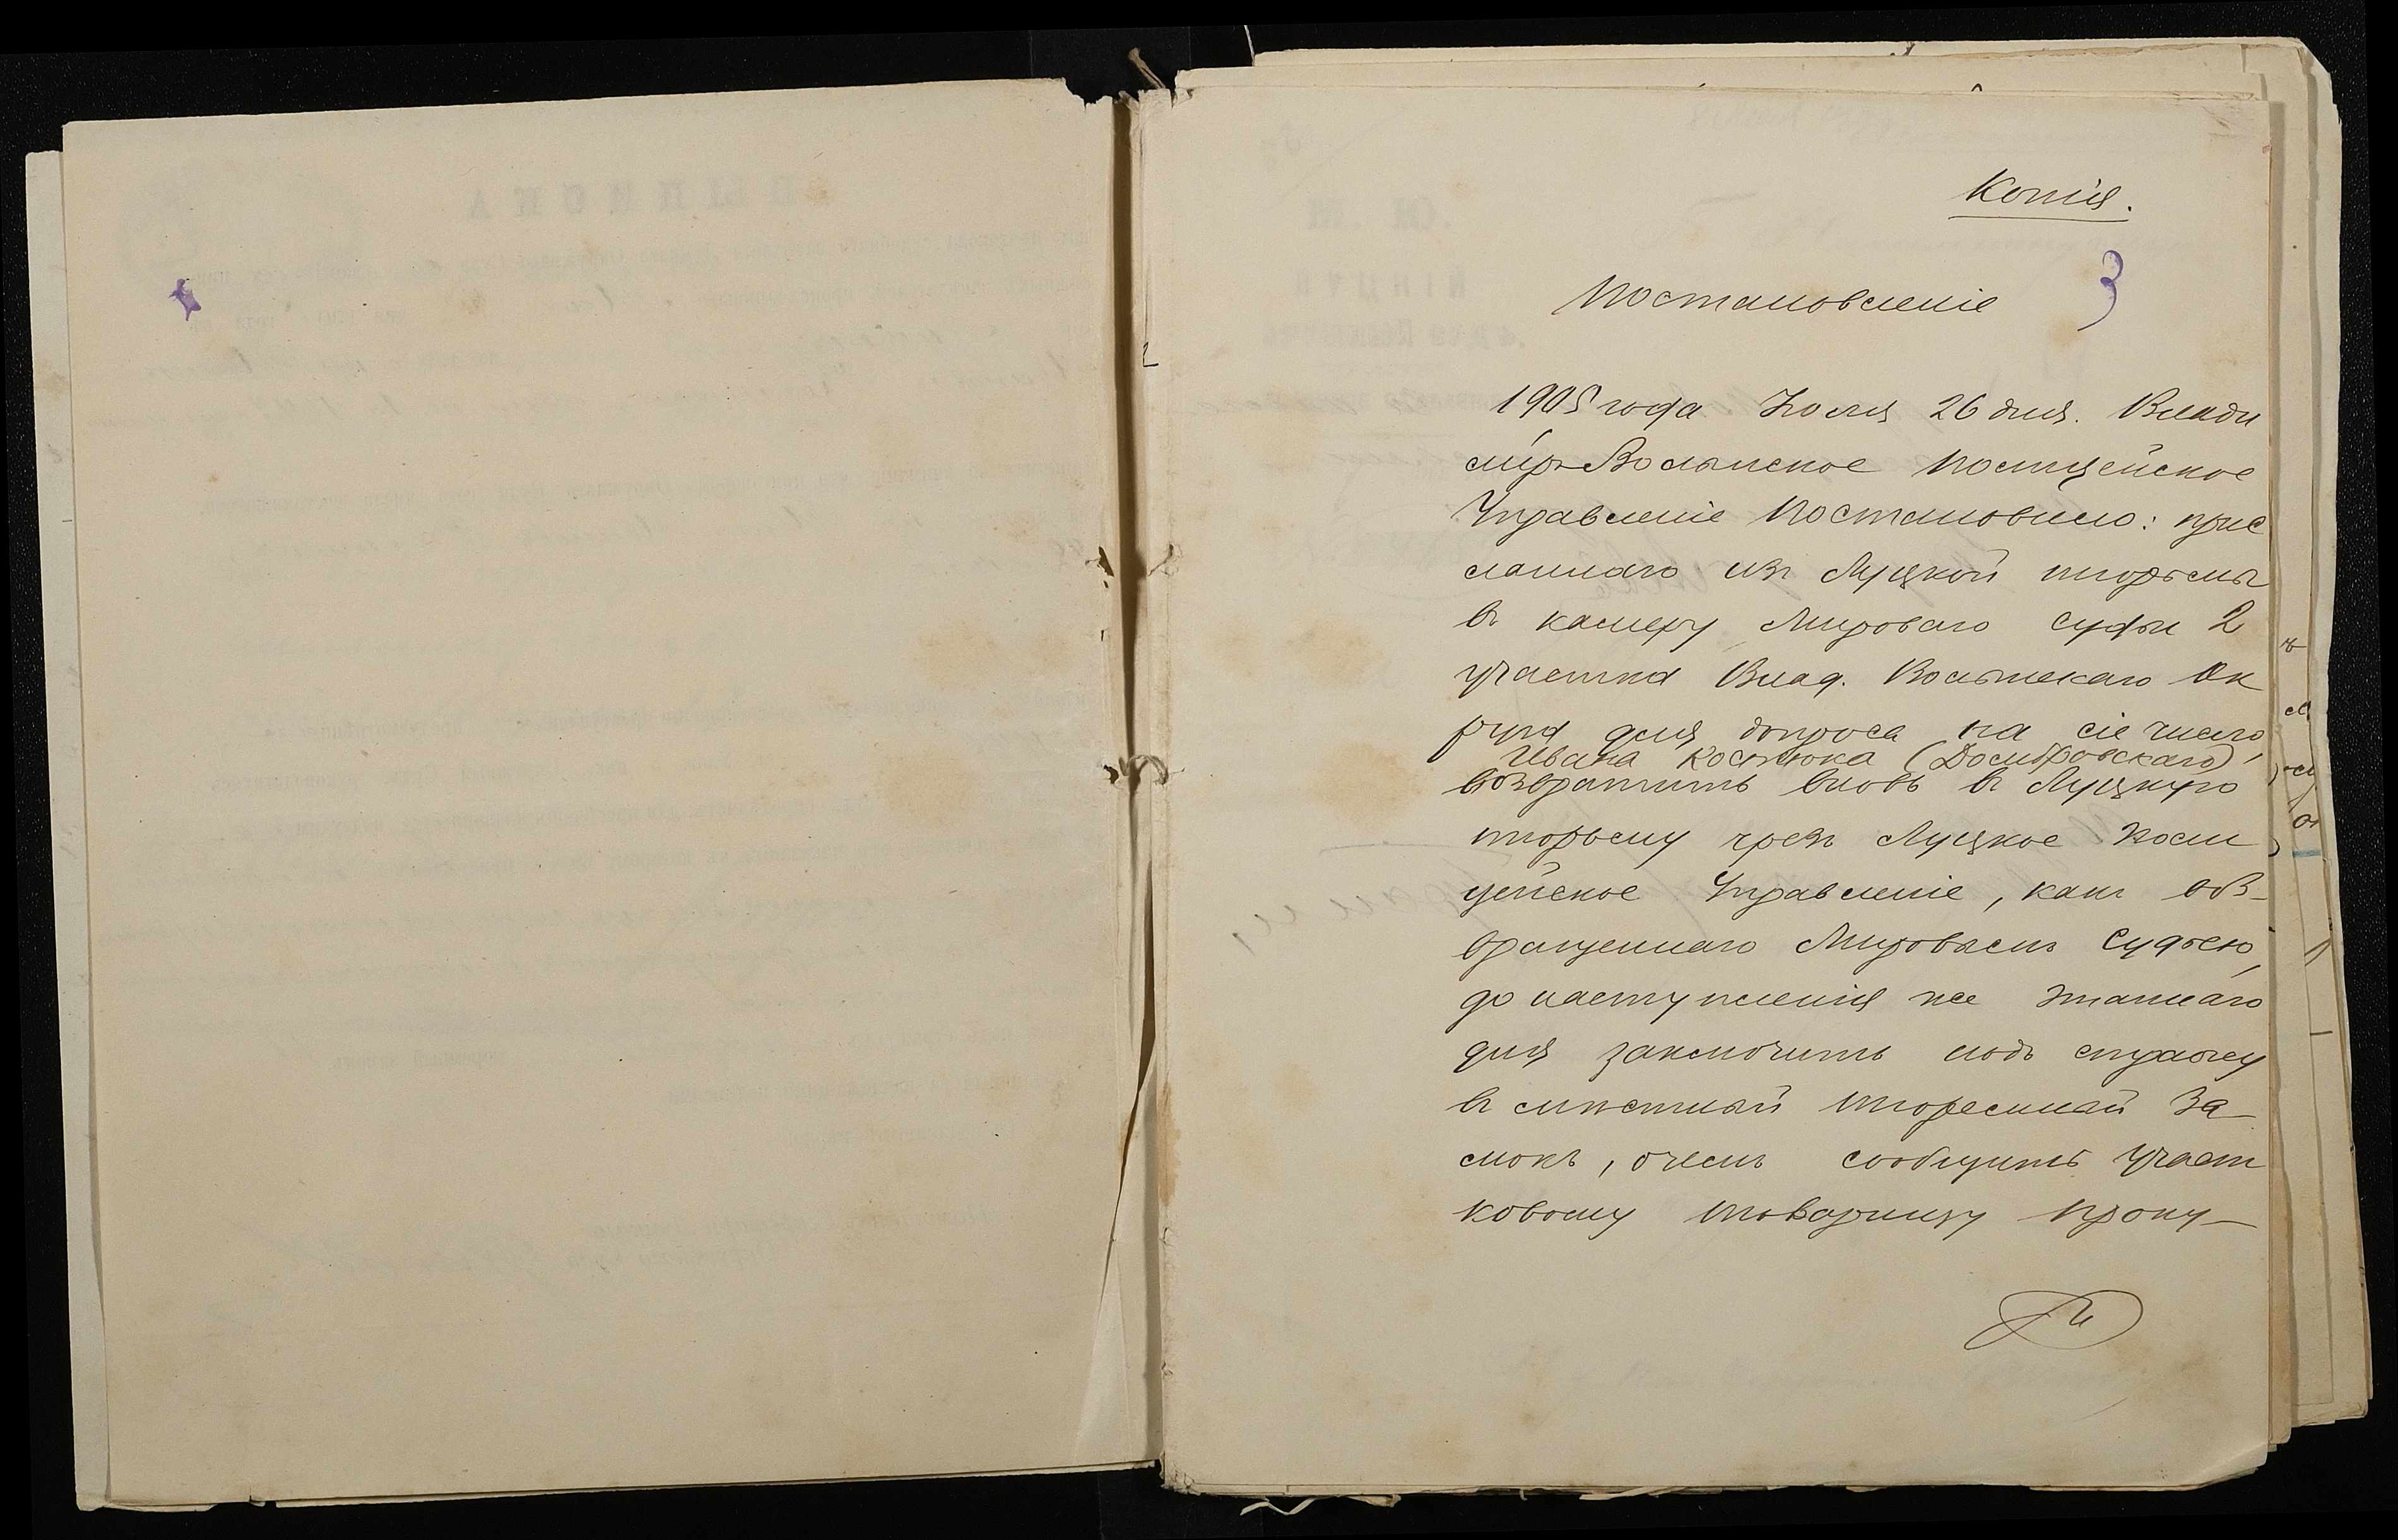 Копія.
3
Постановленіе
1905 года Іюля 26 дня. Влади
мір-Волынское Полицейское
Управленіе Постановило: прис
ланнаго изъ Луцкой тюрьмы
въ камеру Мирового Судьи 2
участка Влад. Волынскаго Ок
руга для допроса на сіе число,
Ивана Костюка (Домбровскаго),
возвратить вновь въ Луцкую
тюрьму чрезъ Луцкое Поли
цейское Управленіе, какъ воз-
вращеннаго Мировымъ Судьею,
до наступленія же этапнаго
дня заключить подъ стражу
въ мѣстный тюремный За-
мокъ, о чемъ сообщить Участ
ковому товарищу Проку-